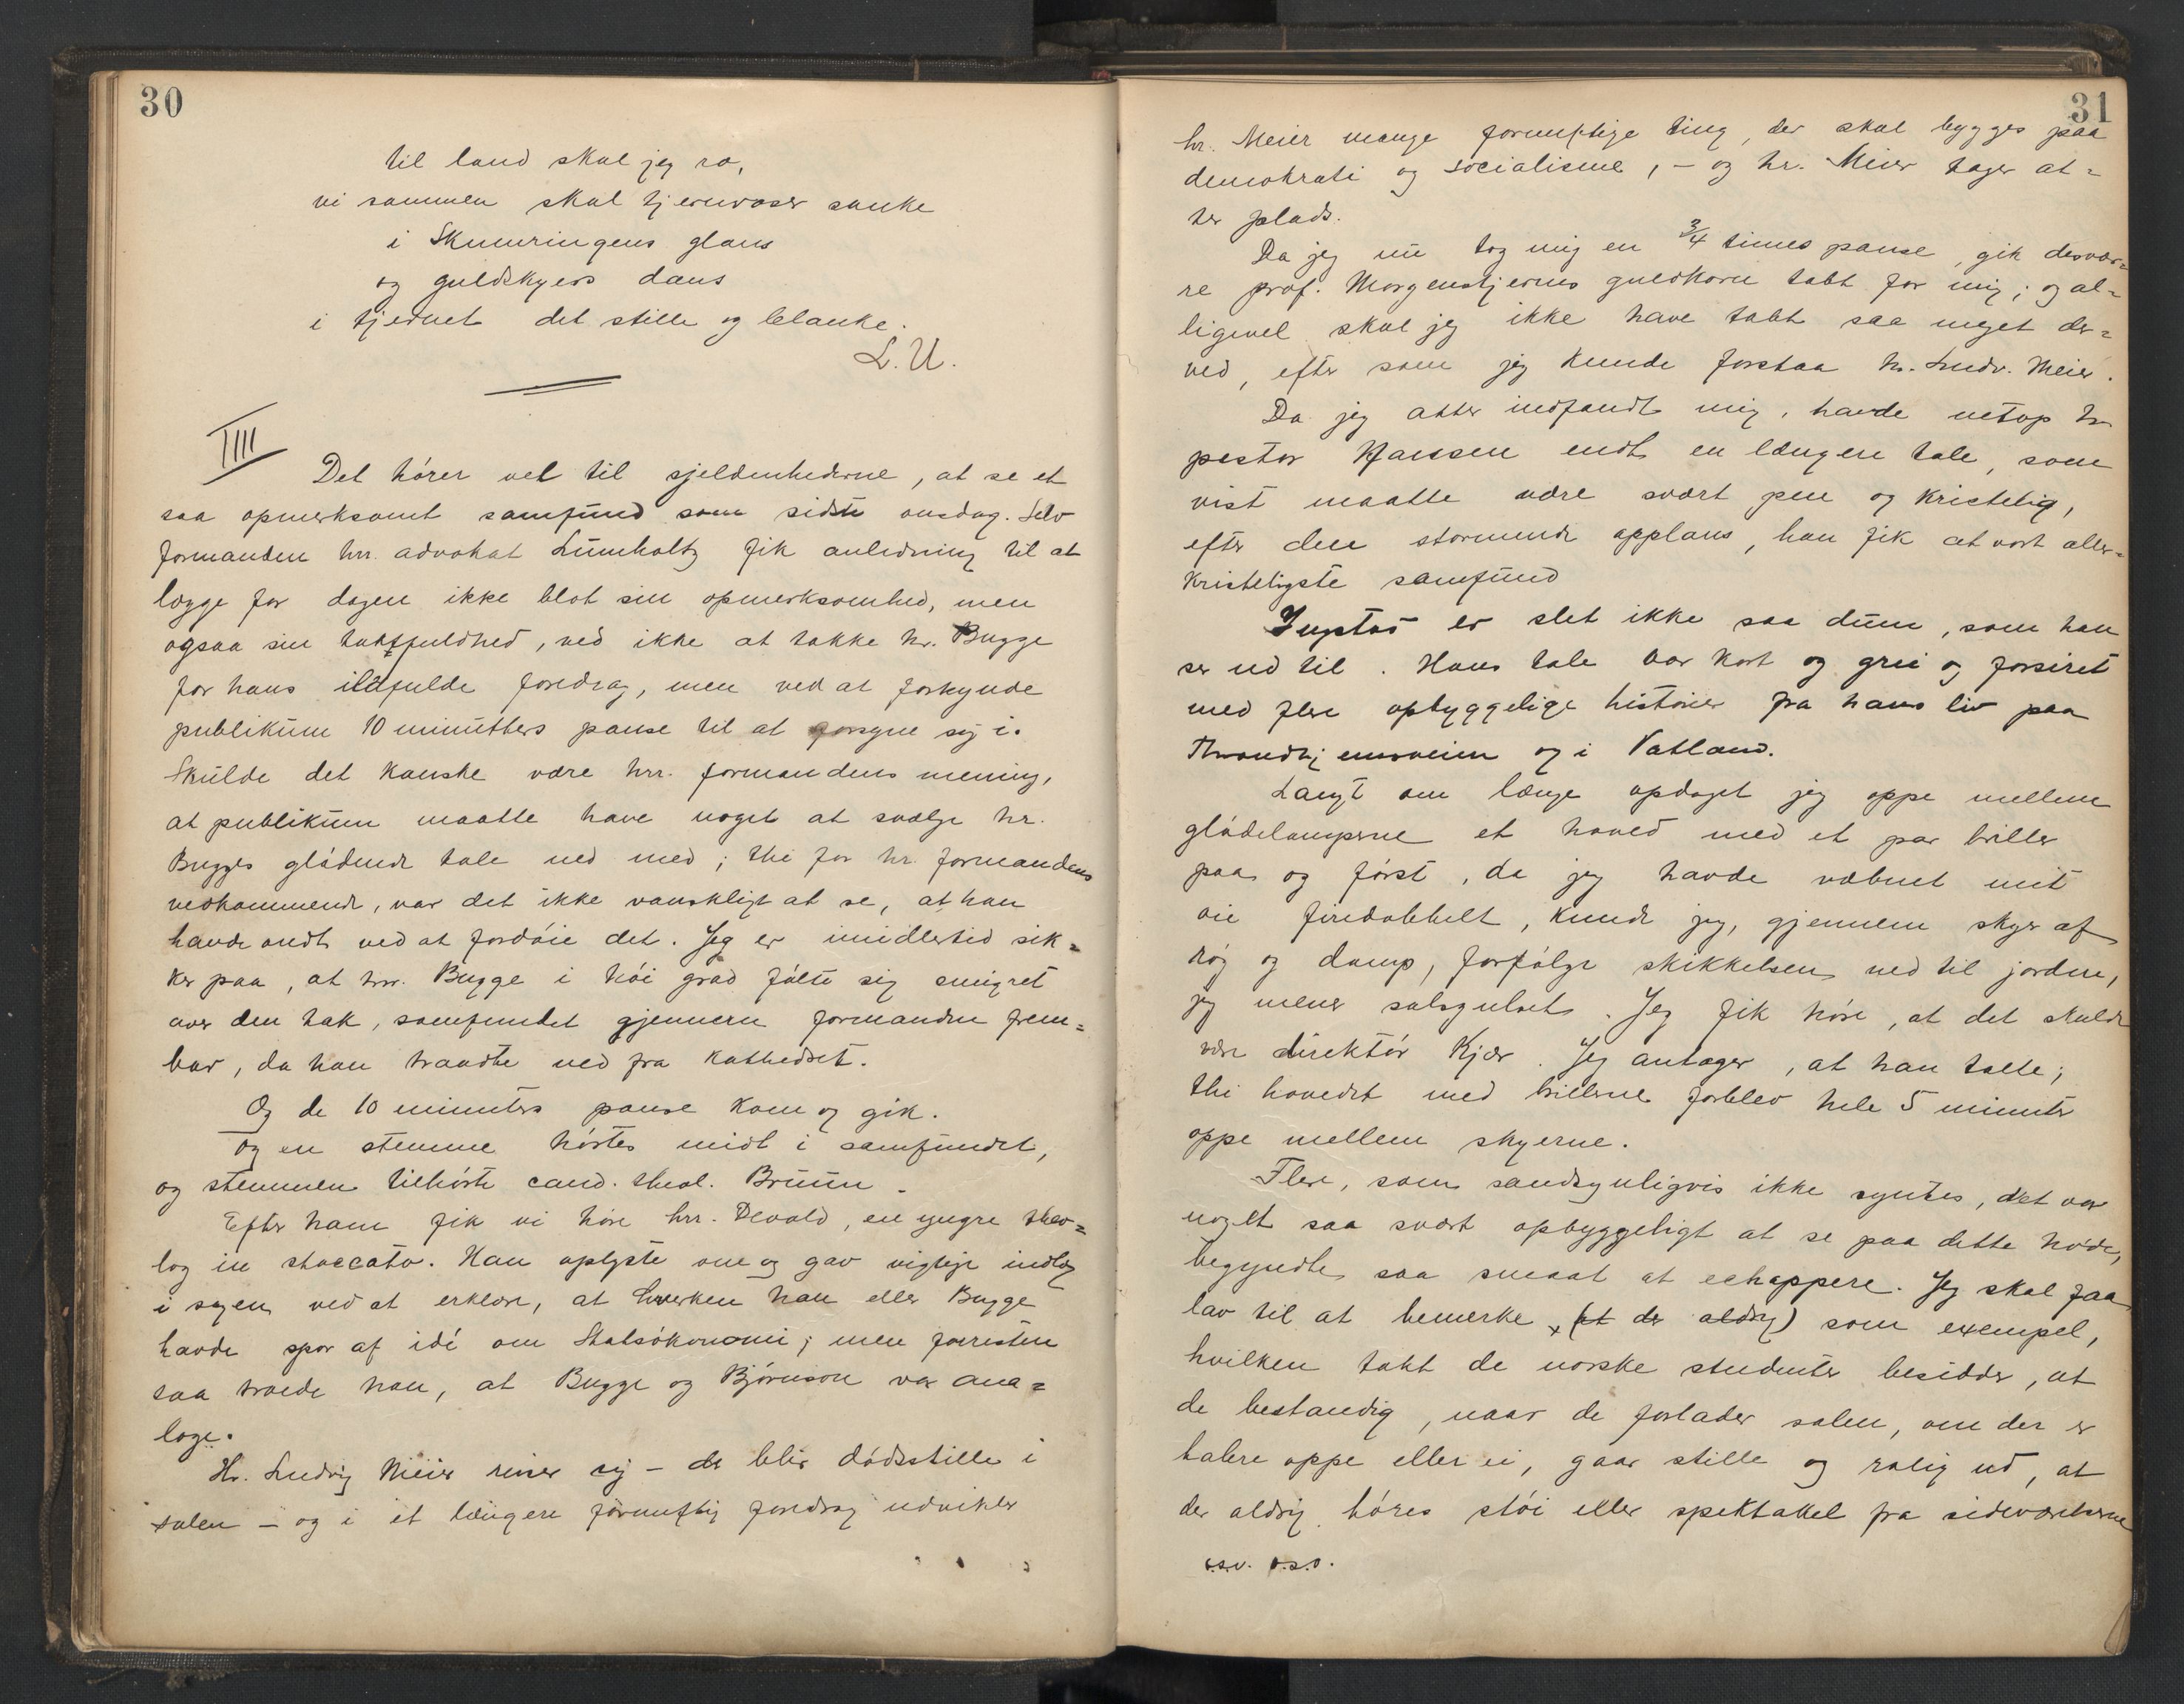 30
til land skal jeg ro,
vi sammen skal tjernroser sanke
i Skumringens glans
og guldskyers dans
i tjernet det stille og blanke.
L. U.
IIII
Det hører vel til sjeldenhederne, at se et
saa opmerksomt samfund som sidste onsdag. Selv
formanden hrr. advokat Lumholtz fik anledning til at
lægge for dagen ikke blot sin opmerksomhed, men
ogsaa sin taktfuldhed, ved ikke at takke hr. Bugge
for hans ildfulde foredrag, men ved at forkynde
publikum 10 minutters pause til at forsyne sig i.
Skulde det kanske være hrr. formandens mening,
at publikum maatte have noget at svælge hr.
Bugges glødende tale ned med; thi for hr. formandens
vedkommende, var det ikke vanskligt at se, at han
havde ondt ved at fordøie det. Jeg er imidlertid sik=
ker paa, at hrr. Bugge i høi grad følte sig smigret
over den tak, samfundet gjennem formanden frem=
bar, da han traadte ned fra kathedret.
Og de 10 minuters pause kom og gik.
og en stemme hørtes midt i samfundet,
og stemmen tilhørte cand. theol. Bruun.
Efter ham fik vi høre hrr. Devold, en yngre theo=
log in staccato. Han oplyste om og gav vigtige indlæg
i sagen ved at erklære, at hverken han eller Bugge
havde spor af idé om Statsøkonomi; men forresten
saa troede han, at Bugge og Bjørnson var ana=
loge.
Hr. Ludvig Meier reiser sig – der blir dødsstille i
salen – og i et længere fornuftig foredrag udvikler
31
hr. Meier mange fornuftige ting, der skal bygges paa
demokrati og socialisme, – og hr. Meier tager at=
ter plads.
Da jeg nu tog mig en 3/4 times pause, gik desvær=
re prof. Morgenstjernes guldkorn tabt for mig; og al=
ligevel skal jeg ikke have tabt saa meget der=
ved, efter som jeg kunde forstaa hr. Ludv. Meier.
Da jeg atter indfandt mig, havde netop hr
pastor Hanssen endt en længere tale, som
vist maatte være svært pen og kristelig,
efter den stormende applaus, han fik at vort aller=
kristeligste samfund
Gustav er slet ikke saa dum, som han
ser ud til. Hans tale var kort og grei og forsiret
med flere opbyggelige historier fra hans liv paa
Throndhjemsveien og i Vatland.
Langt om længe opdaget jeg oppe mellem
glødelamperne et hoved med et par briller
paa og først, da jeg havde væbnet mit
øie firedobbelt, kunde jeg, gjennem skyer af
røg og damp, forfølge skikkelsen ned til jorden,
jeg mener salsgulvet. Jeg fik høre, at det skulde
være direktør Kjær. Jeg antager, at han talte;
thi hovedet med brillerne forblev hele 5 minuter
oppe mellem skyerne.
Flere, som sandsynligvis ikke syntes, det var
noget saa svært opbyggeligt at se paa dette hode,
begyndte saa smaat at echappere. Jeg skal faa
lov til at bemerke, (at der aldrig) som exempel,
hvilken takt de norske studenter besidder, at
de bestandig, naar de forlader salen, om der er
talere oppe eller ei, gaar stille og rolig ud, at
der aldrig høres støi eller spektakkel fra sideværelserne
o.s.v. o.s.v.